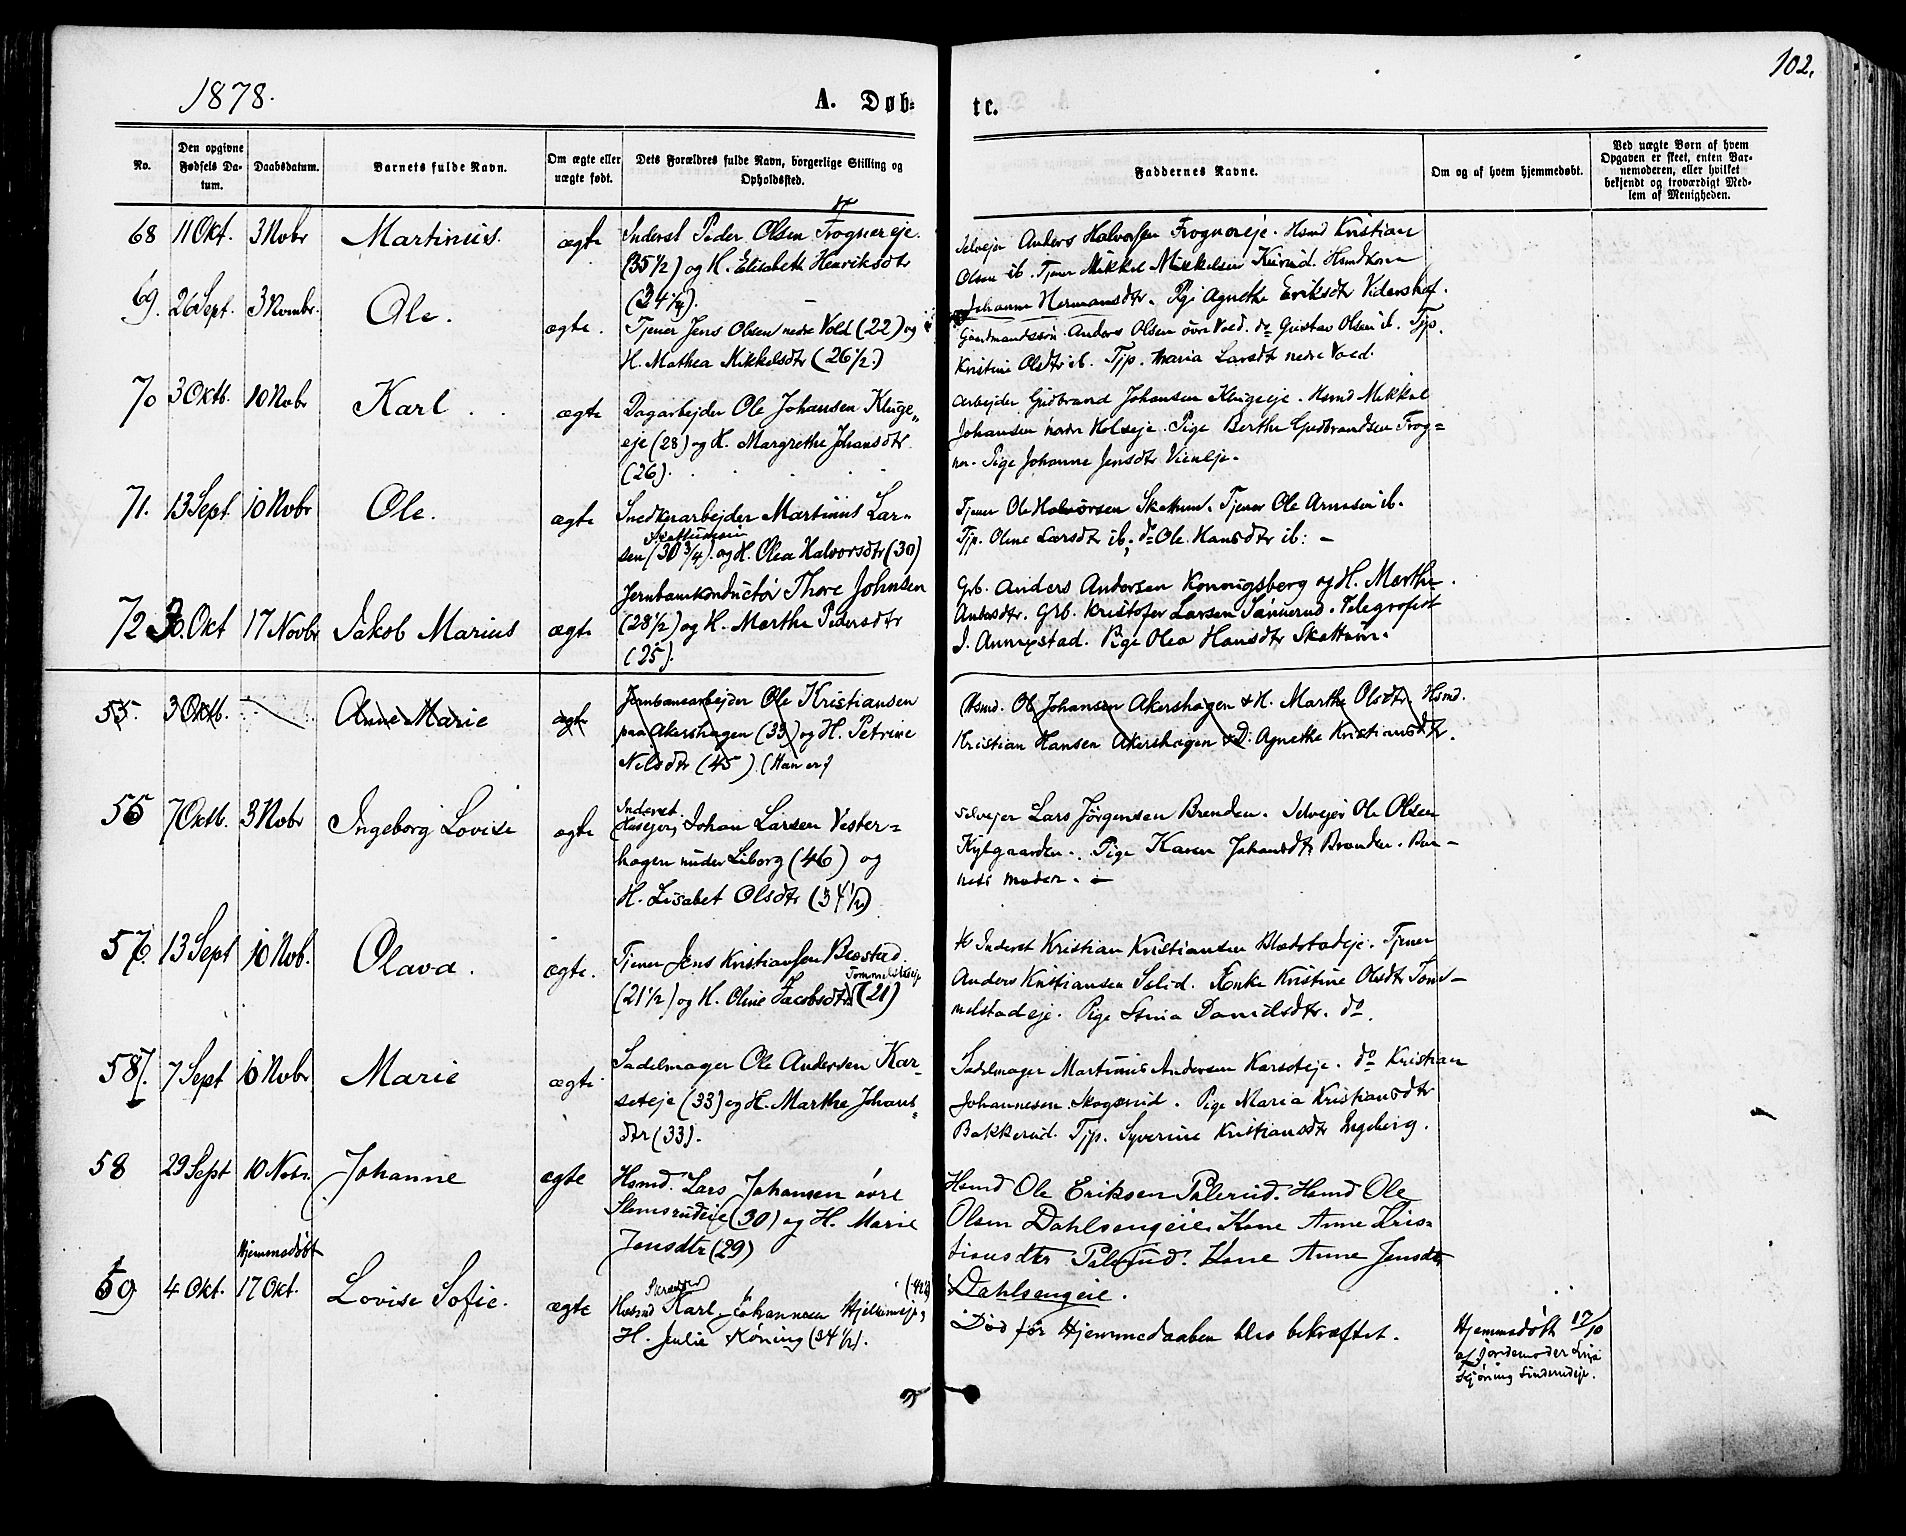 1878.
A. Døb-
te.
102.
No.
Den opgivne Fødsels Da-
tum.
Daabsdatum.
Barnets fulde Navn.
Om ægte eller
uægte født.
Dets Forældres fulde Navn, borgerlige Stilling og
Opholdssted.
Faddernes Navne.
Om og af hvem hjemmedøbt.
Ved uægte Børn af hvem
Opgaven er skeet, enten Bar-
nemoderen, eller hvilket
bekjendt og troværdigt Med-
lem af Menigheden.
68 11 Okt. 3 Nobr Martinus. ægte
Inderst Peder Olsen Frognereje.
(35 1/2) og H. Elisabeth Henriksdtr
(34 1/4).
Selvejer Anders Halvorsen Frognereje. Hsmd Kristian
Olsen ib. Tjener Mikkel Mikkelsen
Johanne Hermansdtr. Pige Agnethe Eriksdtr
69. 26 Sept. 3 Novembr. Ole. ægte.
Tjener Jens Olsen nedre Vold (22) og
H. Mathea Mikkelsdtr (26 1/2.)
Gaardmandssøn Anders Olsen øvre Vold. do Gustav Olsen ib. Tjp.
Kristine Olsdtr ib. Tjp. Maria Larsdtr nedre Vold.
70 3 Oktb. 10 Nobr Karl. ægte
Dagarbejder Ole Johansen Kluge-
eje (28) og H. Margrethe Johansdtr
(26).
Arbejder Gudbrand Johansen Klugeeje. Hsmd Mikkel
Johansen nedre Holseje. Pige Berthe Gudbrandsen Frog-
ner. Pige Johanne Jensdtr
71. 13 Sept. 10 Nobr Ole. ægte
Snedkerarbejder Martinus Lar-
sen (30 3/4) og H. Olea Halvorsdtr (30)
Tjener Ole Halvorsen Skattum. Tjener Ole Arnesen ib.
Tjp. Oline Larsdtr ib, do Ole Hansdtr ib: -
72 30. Okt 17 Novbr Jakob Marius ægte
Jernbanekonductør Thore Johnsen
(28 1/2) og H. Marthe Pedersdtr
(25).
Grb. Anders Andersen Kongsberg og H. Marthe
Andersdtr. Grb. Kristofer Larsen Telegrafist
J. Annexstad. Pige Olea Hansdtr Skattum.
55. 3 Oktb. Anne Marie ægte
Jernbanearbejder Ole Kristiansen
paa Akershagen (33) og H. Petrine
Nilsdtr (45) (Han er)
Hsmd. Ole Johansen Akershagen & H. Marthe Olsdtr. Hsmd.
Kristian Hansen Akershagen & D. Agnethe Kristiansdtr.
55 7 Oktb. 3 Nobr Ingeborg Lovise ægte
Inderst
Husejer, Johan Larsen Vester-
hagen under Liborg (46) og
H. Lisabet Olsdtr (34 1/2)
Selvejer Lars Jørgensen Brenden. Selvejer Ole Olsen
Kylgaarden. Pige Karen Johansdtr Brenden. Bar-
nets moder. -
57. 13 Sept 10 Nob. Olava. ægte.
Tjener Jens Kristiansen
(21 1/2) og H. Oline Jacobsdtr (21)
Inderst Kristian Kristiansen Blæstadeje. Tjener
Anders Kristiansen Enke Kristine Olsdtr Tom-
melstadeje. Pige Stina Danielsdtr. do.
58. 7 Sept 10 Nobr Marie ægte
Sadelmager Ole Andersen Kar-
seteje (33) og H. Marthe Johans-
dtr (33).
Sadelmager Martinus Andersen Karseteje. do Kristian
Johannesen Skogerud. Pige Maria Kristiansdtr
Bakkerud. Tjp. Syverine Kristiansdtr Engberg.
58 29 Sept 10 Nobr. Johanne ægte
Hsmd. Lars Johansen øvre
Slemsrudeie (30) og H. Marie
Jensdtr (29)
Hsmd Ole Eriksen Palerud. Hsmd Ole
Olsen Dahlsengeie. Kone Anne Kris-
tiansdtr Palerud. Kone Anne Jensdtr
Dahlsengeie.
59 4 Okt. Hjemmedøbt 17 Okt. Lovise Sofie. ægte
Karl Johannesen
H. Julie Køning (34 1/2).
Død før Hjemmedaaben blev bekræftet.
Hjemmedøbt 17/10
af Jordemoder